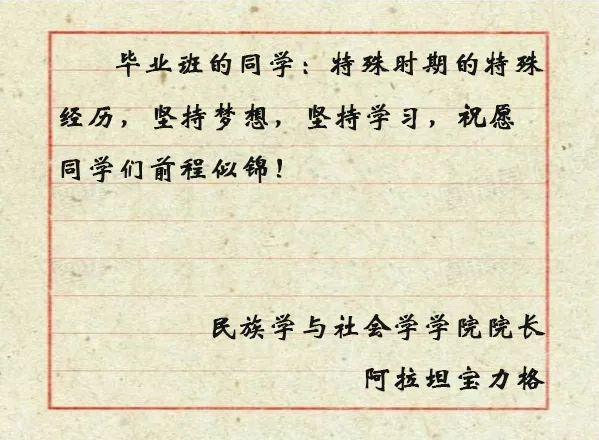 毕业班的同学：特殊时期的特殊
经历，坚持梦想，坚持学习，祝愿
同学们前程似锦！
民族学与社会学学院院长
阿拉坦宝力格